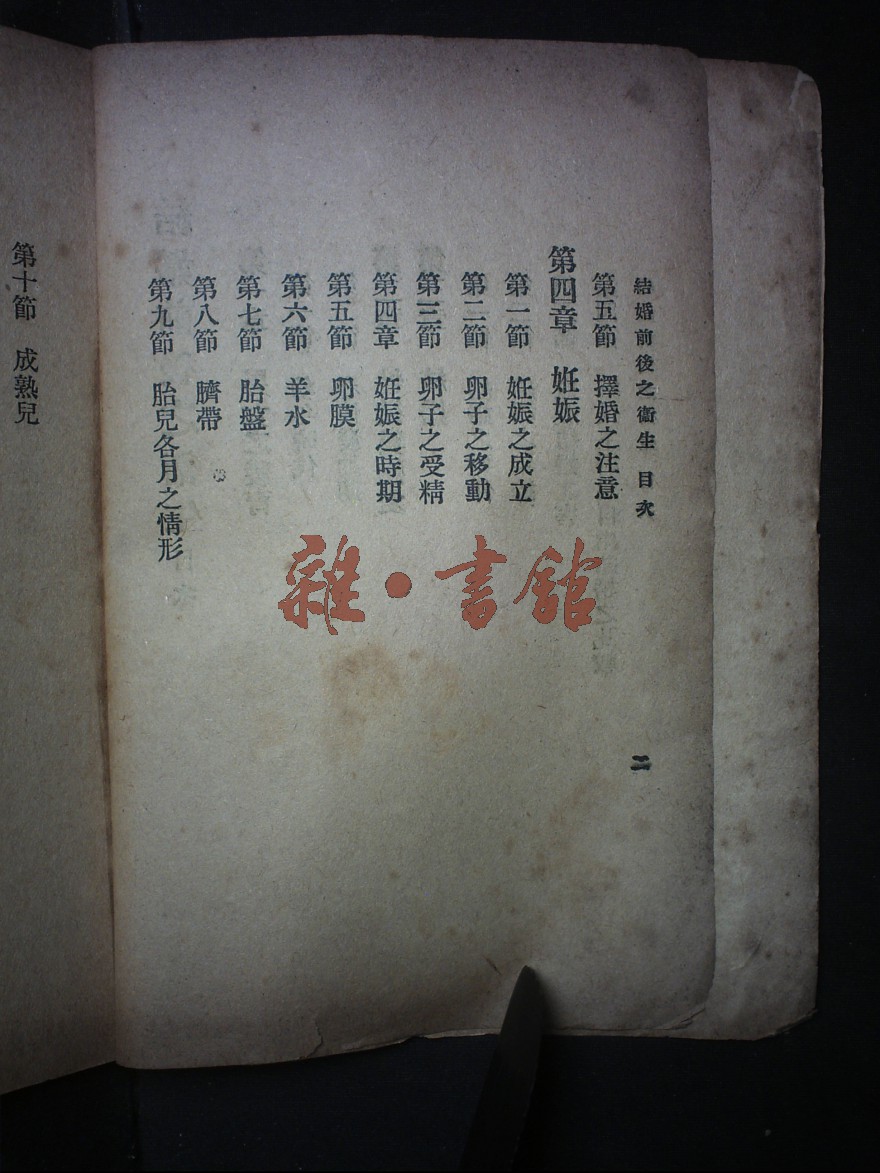 結婚前後之衞生 目次
二
第五節 擇婚之注意
第四章 妊娠
第一節 妊娠之成立
第二節 卵子之移動
第三節 卵子之受精
第四章 妊娠之時期
第五節 卵膜
第六節 羊水
第七節 胎盤
第八節 臍帶
第九節 胎兒各月之情形
第十節 成熟兒
雜·書館